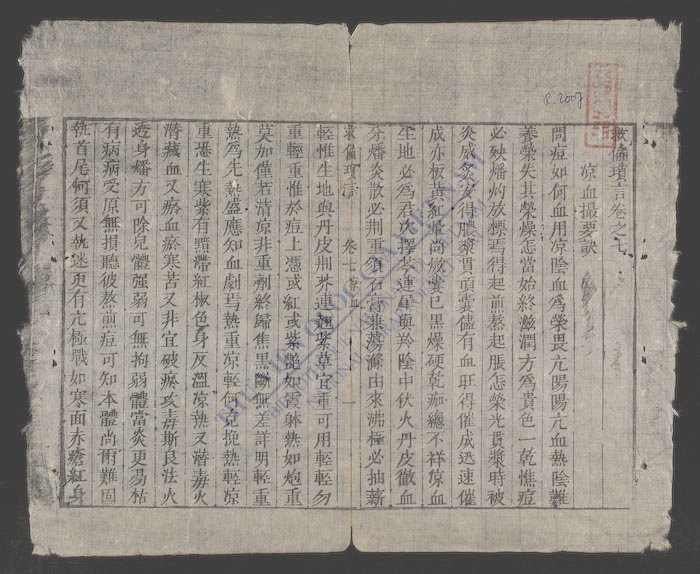 救偏瑣言卷之七
涼血撮要訣
問痘如何血用凉陰血為榮畏亢陽陽亢血熱陰難
養榮失其榮燥怎當始終滋潤方為貴色一乾憔痘
必殃燔灼放標焉得起煎熬起脹怎榮光貫漿時被
炎威灼安得膿漿貫頂囊儘有血旺得催成迅速催
成亦板黃紅暈尚嫩囊已黑燥硬乾痂總不祥凉血
生地必為君次擇芩連犀與羚陰中伏火丹皮徹血
分燔炎散必荆重須石膏兼蕩滌由來沸極必抽薪
救偏瑣言 卷七凉血 一
輕惟生地與丹皮荆芥連翹紫草宜重可用輕輕勿
重輕重惟於痘上憑或紅或紫艷如霞躰熱如炮重
莫加僅若清凉非重劑終歸焦黑陽無差詳明輕重
熱為先熱盛應知血劇焉熱重凉輕何足挽熱輕凉
重恐生寒紫有黯滯紅椒色身反溫凉熱又潛毒火
潛藏血又瘀血瘀寒苦又非宜破瘀攻毒斯良法火
透身燔方可除兒體强弱可無拘弱體當炎更易枯
有病病受原無損聽彼熬煎痘可知本體尚爾難固
執首尾何須又執迷更有亢極戰如寒面赤瘡紅身
R.2007
THƯ VIỆN QUỐC GIA VIỆT NAM
NATIONAL LIBRARY OF VIETNAM